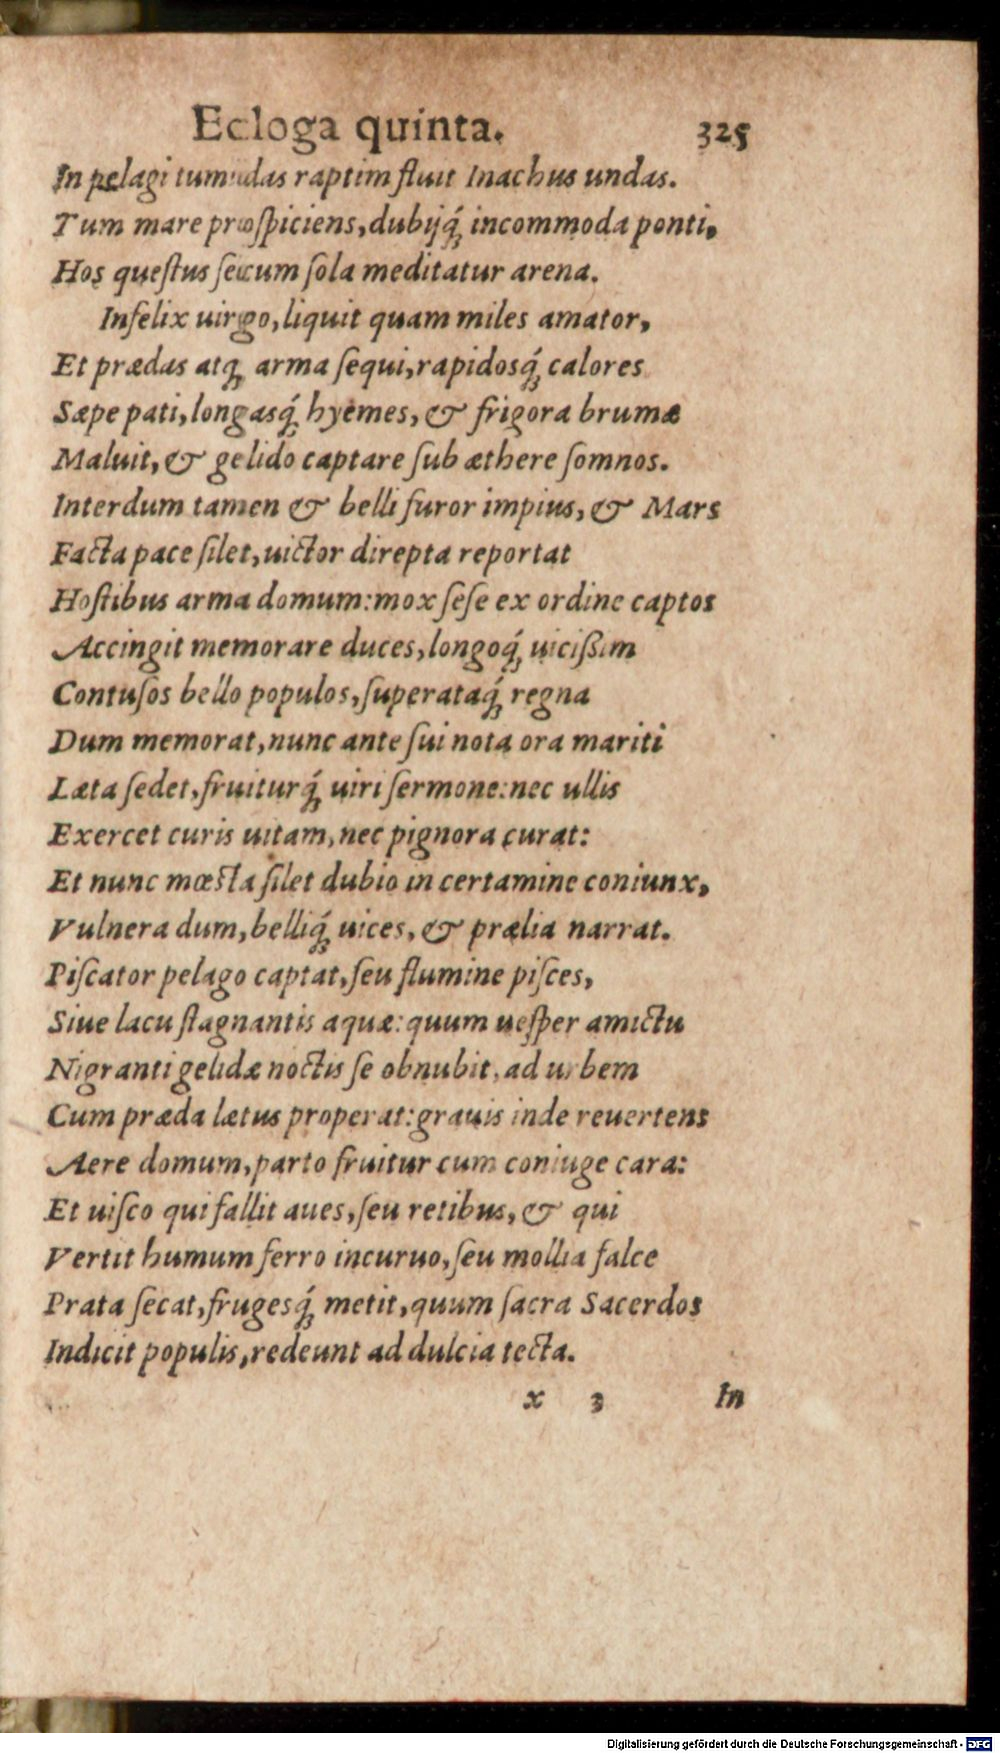 Ecloga quinta. 325
In pelagi tumidas raptim fluit Inachus undas.
Tum mare prospiciens, dubijq́ꝫ incommoda ponti,
Hos questus secum sola meditatur arena.
Infelix uirgo, liquit quam miles amator,
Et prædas atqꝫ arma sequi, rapidosq́ꝫ calores
Sæpe pati, longasq́ꝫ hyemes, & frigora brumæ
Maluit, & gelido captare sub æthere somnos.
Interdum tamen & belli furor impius, & Mars
Facta pace silet, uictor direpta reportat
Hostibus arma domum: mox sese ex ordine captos
Accingit memorare duces, longoq́ꝫ uicißim
Contusos bello populos, superataq́ꝫ regna
Dum memorat, nunc ante sui nota ora mariti
Læta sedet, fruiturq́ꝫ uiri sermone: nec ullis
Exercet curis uitam, nec pignora curat:
Et nunc mœsta silet dubio in certamine coniunx,
Vulnera dum, belliq́ꝫ uices, & prælia narrat.
Piscator pelago captat, seu flumine pisces,
Siue lacu stagnantis aquæ: quum uesper amictu
Nigranti gelidæ noctis se obnubit, ad urbem
Cum præda lætus properat: grauis inde reuertens
Aere domum, parto fruitur cum coniuge cara:
Et uisco qui fallit aues, seu retibus, & qui
Vertit humum ferro incuruo, seu mollia falce
Prata secat, frugesq́ꝫ metit, quum sacra Sacerdos
Indicit populis, redeunt ad dulcia tecta.
x 3 In
Digitalisierung gefördert durch die Deutsche Forschungsgemeinschaft - DFG